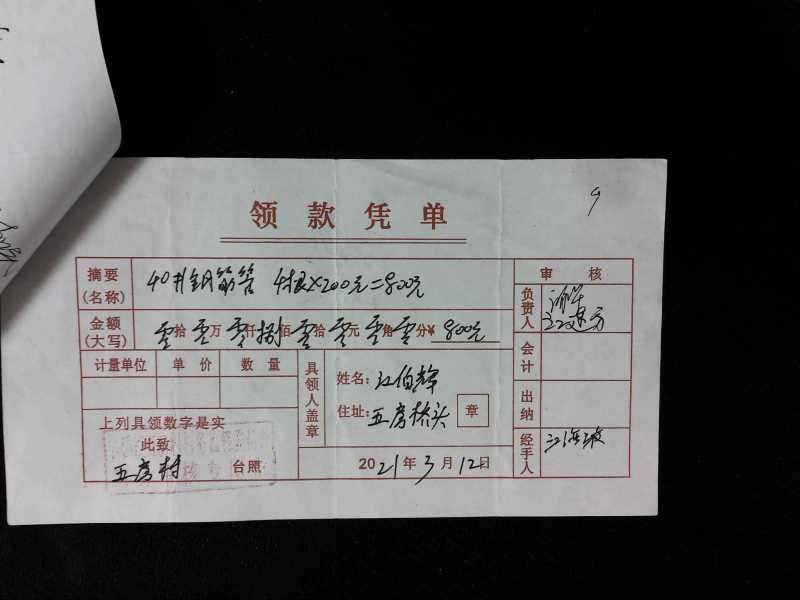 9
领款凭单
摘要(名称) 40# 钢筋管 4根×200元=800元
审核
金额(大写) 零拾零万零仟捌佰零拾零元零角零分¥800元
负责人
计量单位 单价 数量
具领人盖章
姓名:江伯
会计
住址:五房桥头 章
出纳
上列具领数字是实
此致
五房村 台照
2021年3月12日
经手人 江海波